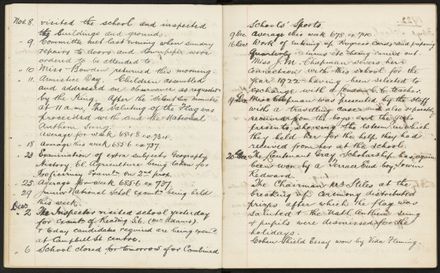 Nov. 8. visited the school and inspected
the buildings and ground.
9 Committee met last evening when sundry
repairs to doors and
ordered to be attended to.
10 Miss Bowen returned this morning.
11 Armistice Day. Children assembled
and addressed on observance as requested
by the King. After the silent two minutes
at 11 a.m. the saluting of the flag was
proceeded with and the National
Anthem sung.
Average for week
18 Average this week
23 Examination of extra subjects Geography
History & Agriculture being taken for
Proficiency Exam on 2nd prox.
25 Average for week
29 Junior National Schol. exam being held
this week.
Dec. 2 The Inspector visited school yesterday
for exam of Reading
& today candidates required are being exam'd
at Campbell St centre.
6 School closed for tomorrow for Combined
Schools Sports
9 Dec Average this week 678 ex 700
16 Dec Work of making up Progress Cards and preparing
Quarterly returns etc being carried out
Miss J. M. Chapman severs her
connection with this school for the
year 1922 having been selected to
exchange with a London C.C. teacher.
Miss Chapman was presented by the staff
with a travelling case and also separate
remembrances from the boys and the girls
presents showing the esteem in which
they held her for the help they had
received from her at the school.
20 Dec The Lieutenant Gray Scholarship has again
been won by a Terrace End boy Lewin
Kedward.
The Chairman Mr Staley at the
breaking up ceremony distributed
prizes after which the flag was
saluted & the Natl Anthem sung
& pupils were dismissed for the
holidays.
Cohen Shield Essay won by Vida Fleming.